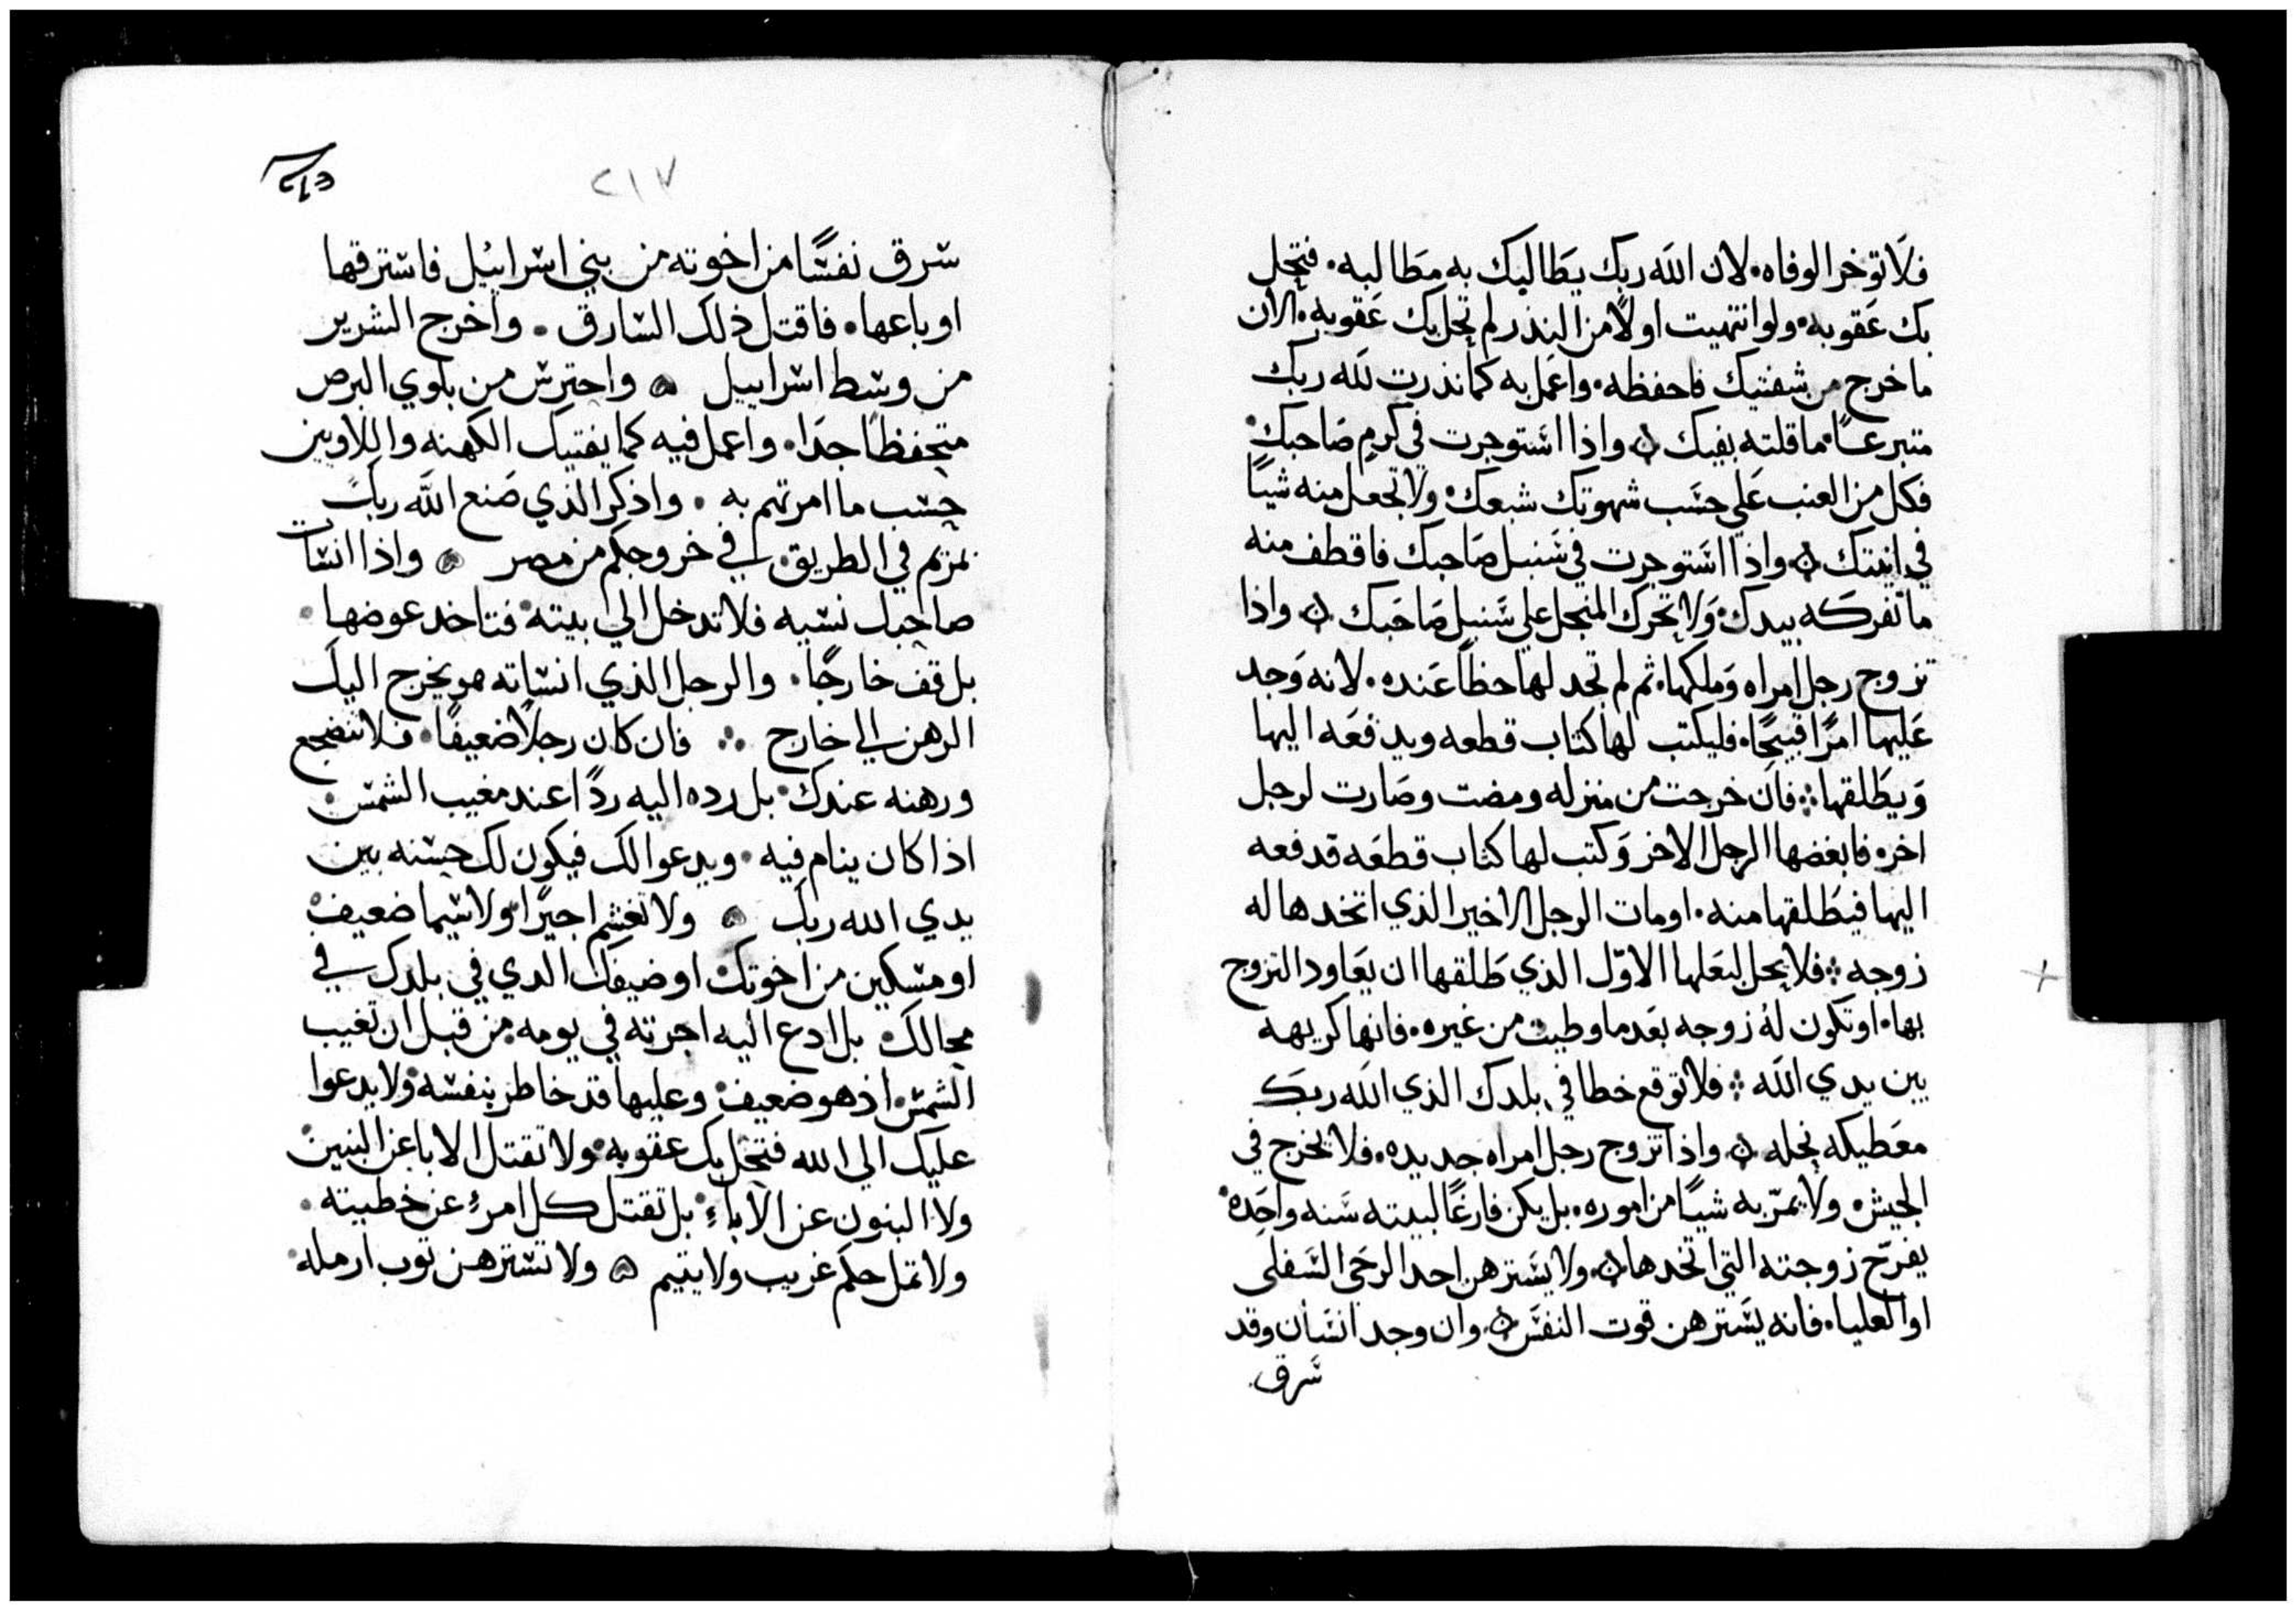 فلا توخر الوفاه. لان الله ربك يطاليك به مطالبه. فتحل
بك عقوبه. ولو انتهيت اولًا من النذر لم تحل بك عقوبه. الان
ما خرج من شفتيك فاحفظه. واعمل به كما نذرت لله ربك
متبرعًا. ما قلته بفيك ۞ واذا استوجرت في كرم صاحبك.
فكل من العنب علي حسب شهوتك شبعك. ولا تجعل منه شيًا
في انيتك ۞ واذا استوجرت في سنبل صاحبك فاقطف منه
ما تفركه بيدك. ولا تحرك المنجل علي سنبل صاحبك ۞ واذا
تزوج رجل امراه وملكها. ثم لم تجد لها حظًا عنده. لانه وجد
عليها امرًا قبيحًا. فليكتب لها كتاب قطعه ويدفعه اليها
ويطلقها ⁘ فان خرجت من منزله ومضت وصارت لرجل
اخر. فابغضها الرجل الاخر وكتب لها كتاب قطعه قدفعه
اليها فيطلقها منه. او مات الرجل الاخير الذي اتخدها له
زوجه ⁘ فلا يحل لبعلها الاوّل الذي طلقها ان يعاود التزوج
بها. او تكون لهُ زوجه بعد ما وطيت من غيره. فانها كريهه
بين يدي الله ⁘ فلا توقع خطا في بلدك الذي الله ربك
معطيكه نحله ۞ واذا تزوج رجل امراه جديده. فلا يخرج في
الجيش. ولا يمرّ به شيًا من اموره. بل يكن فارغًا لبيته سنه واحده.
يفرّح زوجته التي اتخدها ۞ ولا يسترهن احد الرحى السفلى
او العليا. فانه يسترهن قوت النفس ۞ وان وجد انسان وقد
سرق.
٢١٧
سرق نفسًا من اخوته من بني اسراييل فاسترقها
او باعها. فاقتل ذلك السارق. واخرج الشرير
من وسط اسراييل ۞ واحترس من بلوي البرص
متحفظًا جدًا. واعمل فيه كما يفتيك الكهنه والاويين
حسب ما امرتهم به. واذكر الذي صنع الله ربك
بمريم في الطريق في خروجكم من مصر ۞ واذا انسات
صاحبك نسيه فلا تدخل الي بيته. فتاخد عوضها.
بل قف خارجًا. والرجل الذي انساته هو يخرج اليك
الرهن الي خارج ⁘ فان كان رجلًا ضعيفًا. فلا تنضجع
ورهنه عندك. بل رده اليه ردًا عند مغيب الشمس.
اذا كان ينام فيه. ويدعوا لك فيكون لك حسنه بين
يدي الله ربك ۞ ولا تغشم اجيرًا ولاسيما ضعيف
او مسكين من اخوتك او ضيفك الدي في بلدك في
محالك. بل ادع اليه اجرته في يومه من قبل ان تغيب
الشمس. اذ هو ضعيف. وعليها قد خاطر بنفسه. ولا يدعوا
عليك الي الله فتحل بك عقوبه. ولا تقتل الابا عن البنين.
ولا البنون عن الاباءِ. بل تقتل كل امرءٍ عن خطيته.
ولا تمل حكم غريب ولا يتيم ۞ ولا تسترهن توب ارمله.